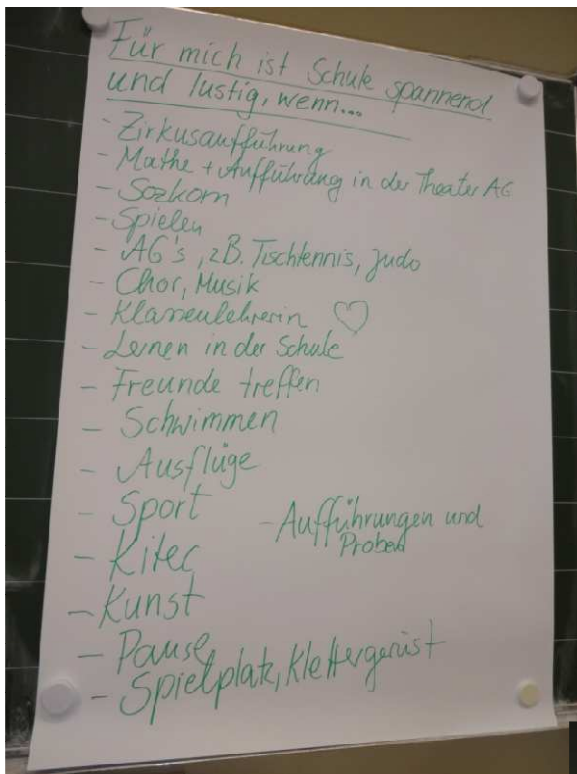 Für mich ist Schule spannend
und lustig, wenn...
- Zirkusaufführung
- Mathe + Aufführung in der Theater AG
- Sozkom
- Spielen
- AG's, zB. Tischtennis, Judo
- Chor, Musik
- Klassenlehrerin ♡
- Lernen in der Schule
- Freunde treffen
- Schwimmen
- Ausflüge
- Sport
- Aufführungen und
Proben
- Kitec
- Kunst
- Pause
- Spielplatz, Klettergerüst